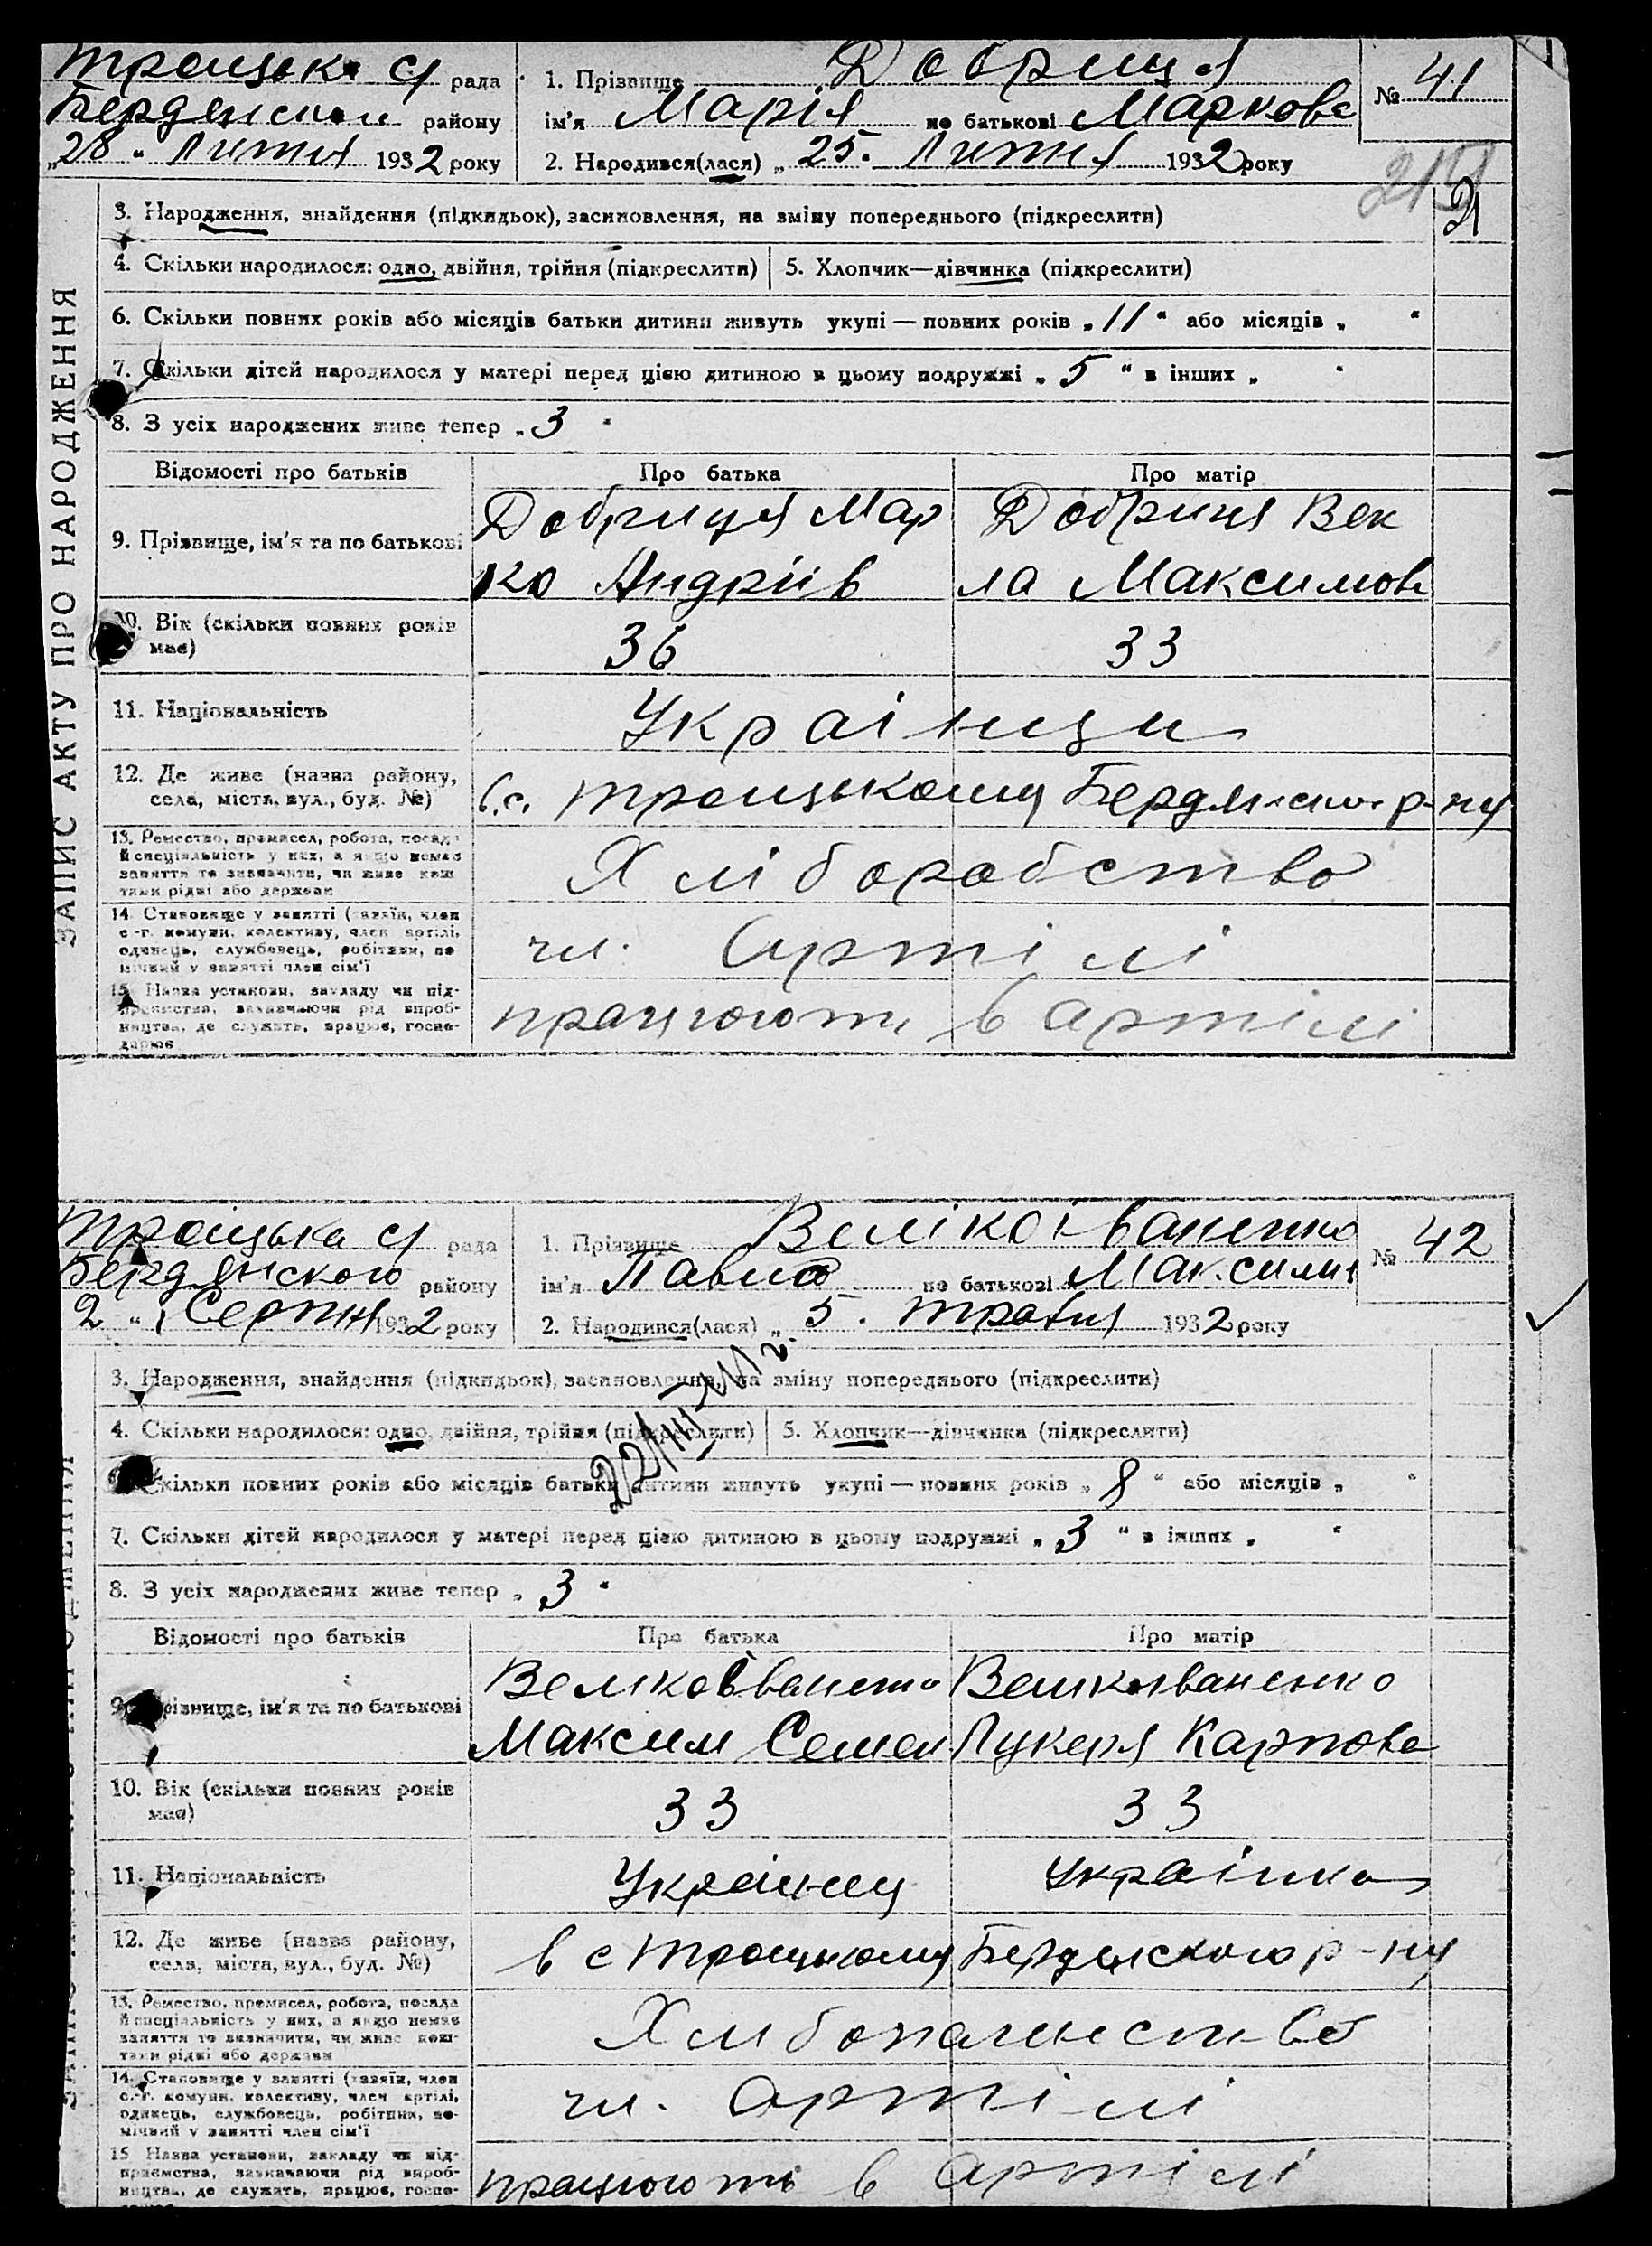 Троицька с/ рада
Бердянськ району
„28“ Липня 1932 року
1. Прізвище Добриця
ім'я Марія по батькові Маркова
2. Народився(лася) „25. Липня 1932 року
№ 41
21
ЗАПИС АКТУ ПРО НАРОДЖЕННЯ
3. Народження, знайдення (підкидьок), засиновлення, на зміну попереднього (підкреслити)
4. Скільки народилося: одно, двійня, трійня (підкреслити)
5. Хлопчик—дівчинка (підкреслити)
6. Скільки повних років або місяців батьки дитини живуть укупі — повних років „11“ або місяців „ “
7. Скільки дітей народилося у матері перед цією дитиною в цьому подружжі „5“ в інших „ “
8. З усіх народжених живе тепер „3“
Відомості про батьків
Про батька
Про матір
9. Прізвище, ім'я та по батькові
Добриця Мар
ко Андріїв
Добриця Век
ла Максимова
10. Вік (скільки повних років
має)
36
33
11. Національність
Українци
12. Де живе (назва району,
села, міста, вул., буд. №)
в с. Троицькому Бердянськ р-ну
13. Ремество, промисел, робота, посада
й спеціяльність у них, а якщо немає
заняття то зазначити, чи живе кош
тами рідні або держави
Хліборобство
14. Становище у занятті (хазяїн, член
с.-г. комуни, колективу, член артілі,
одинець, службовець, робітник, по
мічний у занятті член сім'ї
чл. Артілі
15. Назва установи, закладу чи під-
приємства, зазначаючи рід вироб-
ництва, де служить, працює, госпо-
дарює
працюють в артілі
Троіцька с/ рада
Бердянского району
2 “ Серпня 1932 року
1. Прізвище Велікоіваненко
ім'я Павло по батькові Максим
2. Народився(лася) „5. травня 1932 року
№ 42
3. Народження, знайдення (підкидьок), засиновлення, на зміну попереднього (підкреслити)
4. Скільки народилося: одно, двійня, трійня (підкреслити)
5. Хлопчик—дівчинка (підкреслити)
Скільки повних років або місяців батьки дитини живуть укупі — повних років „8“ або місяців „ “
7. Скільки дітей народилося у матері перед цією дитиною в цьому подружжі „3“ в інших „ “
8. З усіх народжених живе тепер „3“
Відомості про батьків
Про батька
Про матір
9. Прізвище, ім'я та по батькові
Великоіваненко
Максим Семен
Великоиваненко
Лукеря Карпова
10. Вік (скільки повних років
має)
33
33
11. Національність
Українец
Украінка
12. Де живе (назва району,
села, міста, вул., буд. №)
в с Троицькому Бердянського р-ну
13. Ремество, промисел, робота, посада
й спеціяльність у них, а якщо немає
заняття то зазначити, чи живе кош-
тами рідні або держави
14. Становище у занятті (хазяїн, член
с.-г. комуни, колективу, член артілі,
одинець, службовець, робітник, по-
мічний у занятті член сім'ї
чл. артілі
15. Назва установи, закладу чи під-
приємства, зазначаючи рід вироб-
ництва, де служить, працює, госпо-
працюють в артілі